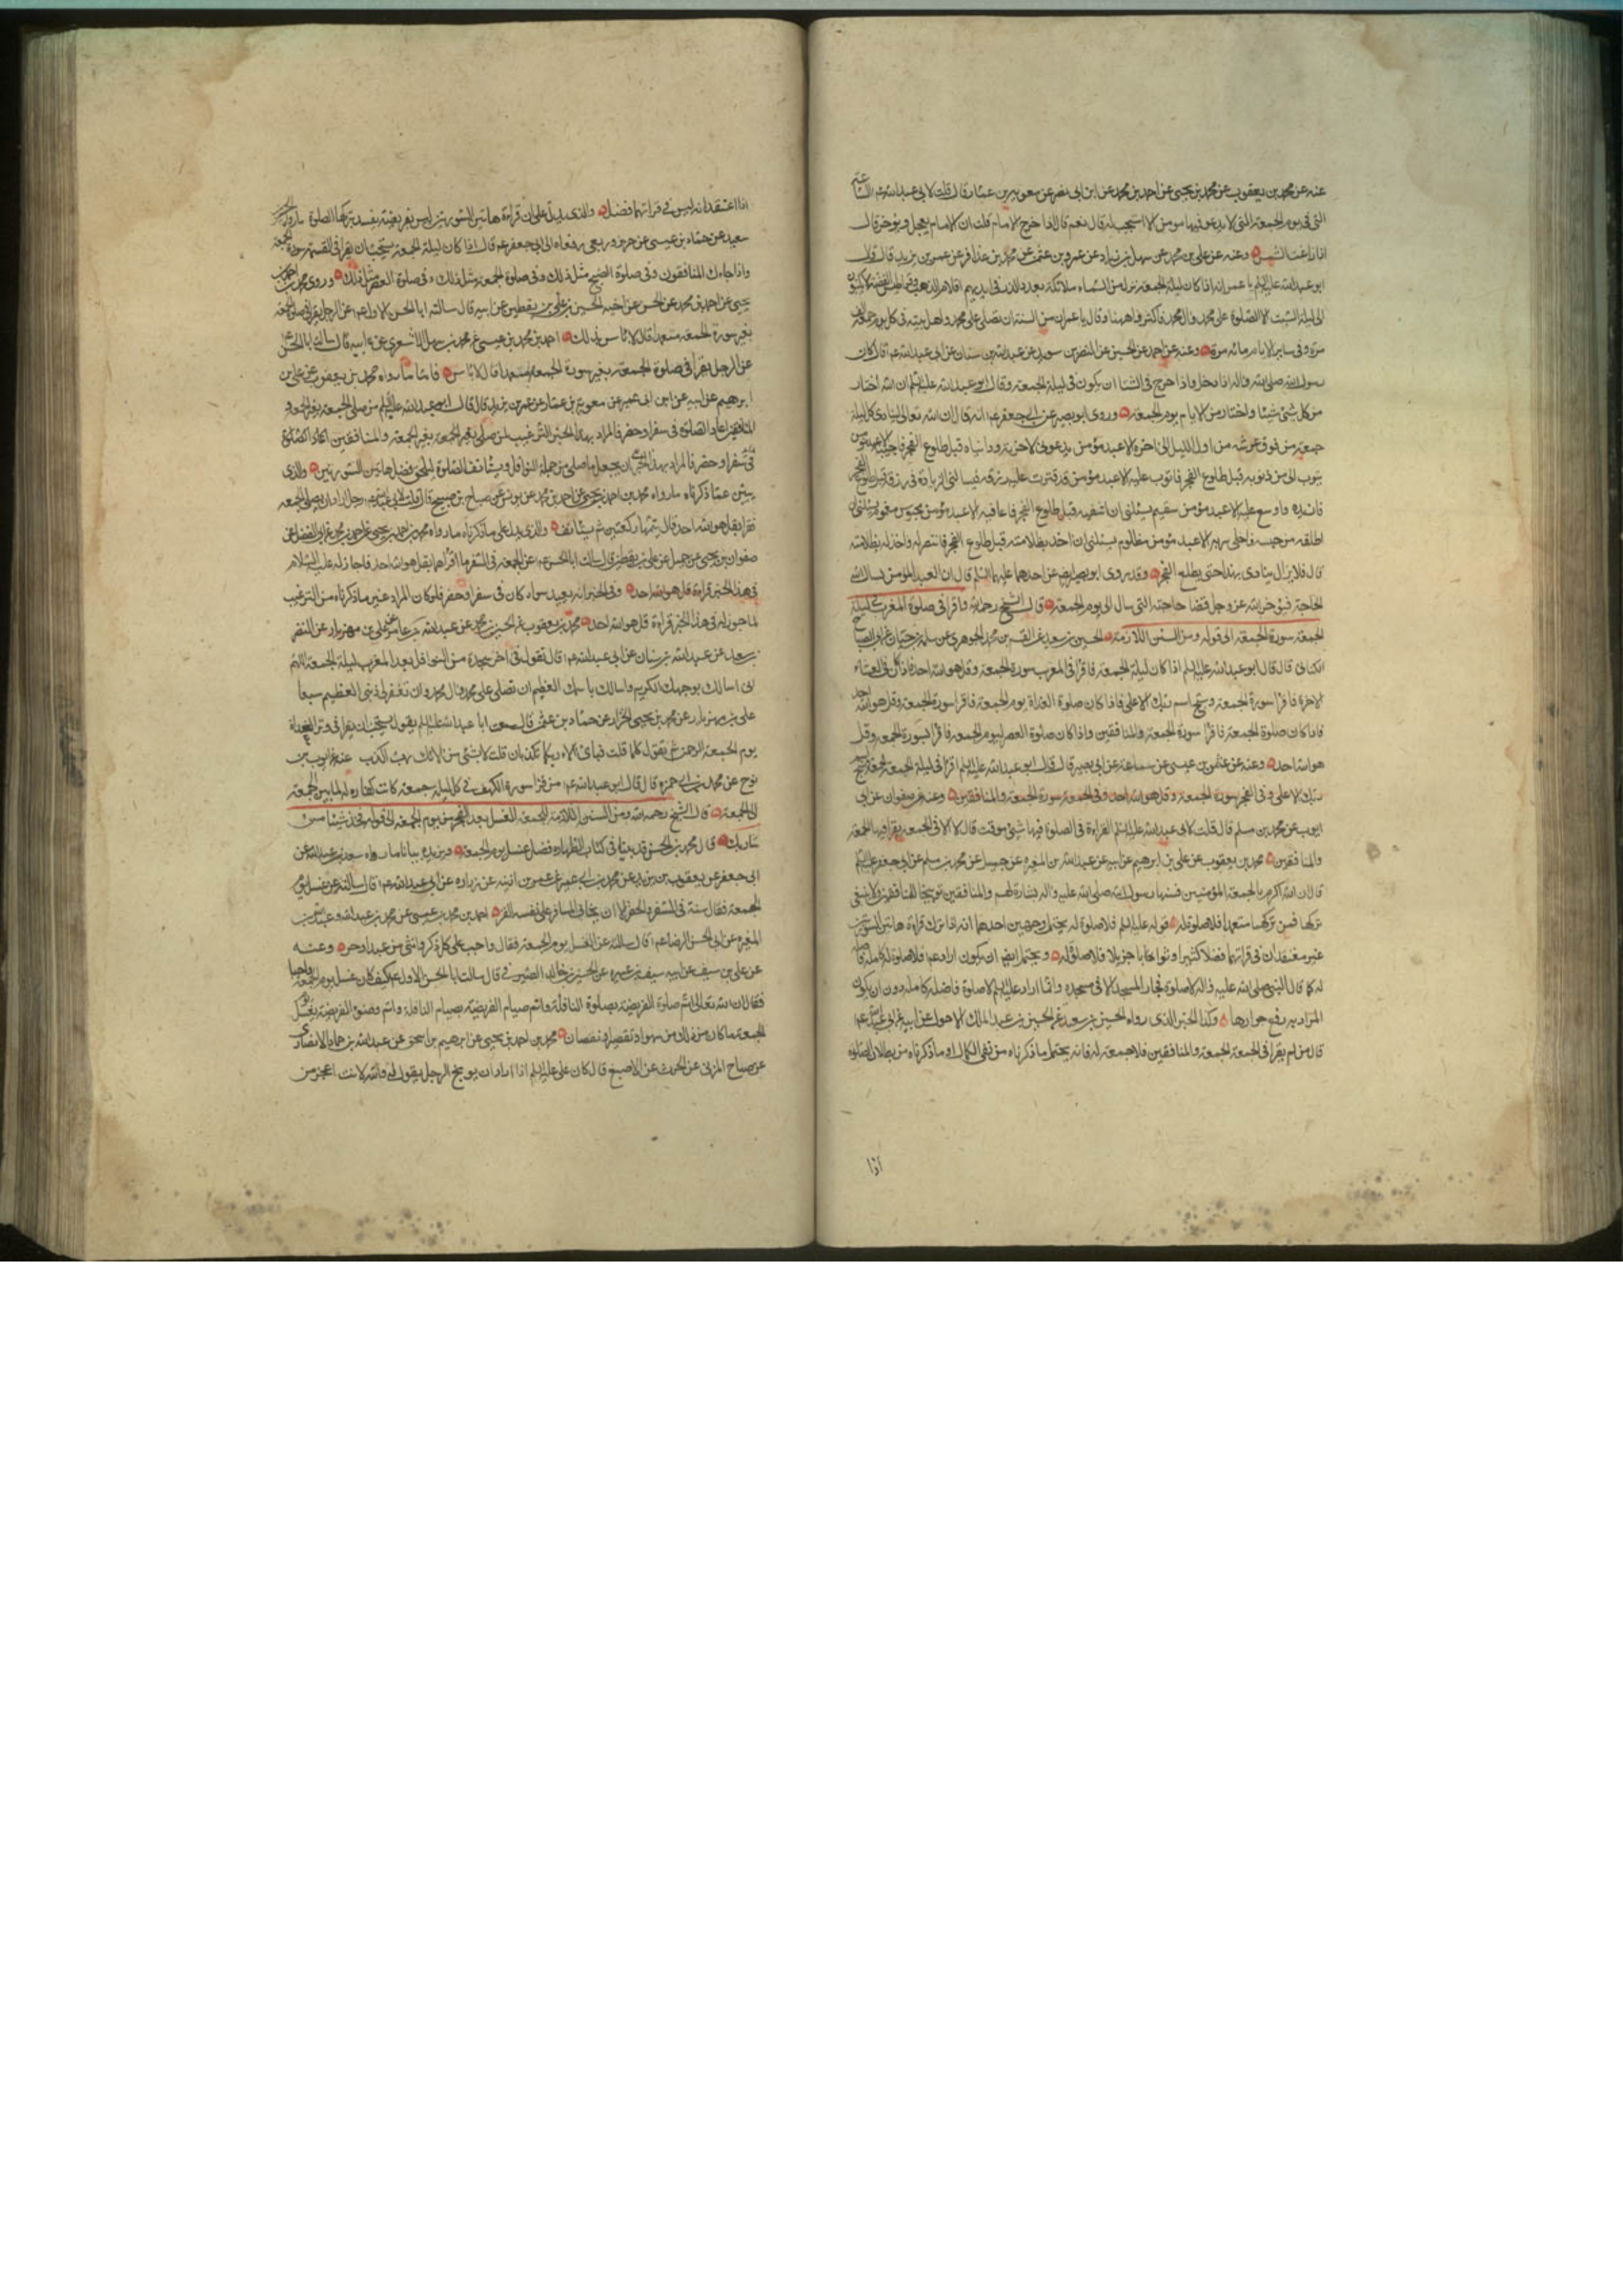 عنه عن محمد بن يعقوب عن محمد بن يحيى عن احمد بن محمد عن ابن ابى نصر عن معوية بن عمار قال قلت لابى عبد الله عم الساعة
التى فى يوم الجمعة التى لا يدعو فيها مومن الا استجيب له قال نعم قال اذا خرج الامام قلت ان الامام يعجل ويؤخر قال
اذا زاغت الشمس وعنه عن على بن محمد عن سهل بن زياد عن عمرو بن عثمن عن محمد بن عذافر عن عمر بن يزيد قال قال
ابو عبد الله عليه السلم يا عمر انه اذا كان ليلة الجمعة نزل من السماء ملائكة بعدد الذر فى ايديهم اقلام الذهب وقراطيس الفضة لا يكتبون
الى ليلة السبت الا الصلوة على محمد وال محمد فاكثر فيها منها وقال يا عمر ان من السنة ان تصلى على محمد واهل بيته فى كل يوم جمعة الف
مرة وفى ساير الايام مائه مرة وعنه عن احمد عن الحسين عن النضر بن سويد عن عبد الله بن سنان عن ابى عبد الله عم قال كان
رسول الله صلى الله واله اذا دخل واذا خرج فى الشتا ان يكون فى ليلة الجمعة وقال ابو عبد الله عليه السلم ان الله اختار
من كل شئ شيئا واختار من الايام يوم الجمعة وروى ابو بصير عن ابى جعفر عم انه قال ان الله تعالى لينادى كل ليلة
جمعة من فوق عرشه من اول الليل الى اخره الا عبد مؤمن يدعونى لاخرته ودنياه قبل طلوع الفجر فاجيبه الا عبد مؤمن
يتوب الى من ذنوبه قبل طلوع الفجر فاتوب عليه الا عبد مؤمن قد قترت عليه رزقه فيسالنى الزيادة فى رزقه قبل طلوع الفجر
فازيده واوسع عليه الا عبد مؤمن سقيم يسئلنى ان اشفيه قبل طلوع الفجر فاعافيه الا عبد مؤمن محبوس مغموم يسئلنى ان
اطلقه من حبسه واخلى سربه الا عبد مؤمن مظلوم يسئلنى ان اخذ بظلامته قبل طلوع الفجر فانتصر له واخذ له بظلامته
قال فلا يزال ينادى بهذا حتى يطلع الفجر وقد روى ابو بصير ايضا عن احدهما عليهما السلم قال ان العبد المؤمن يسال الله
الحاجة فيؤخر الله عز وجل قضا حاجته التى سال الى يوم الجمعة قال الشيخ رحمه الله واقرا فى صلوة المغرب ليلة
الجمعة سورة الجمعة الى قوله ومن السنن اللازمة الحسين بن سعيد عن القسم بن محمد الجوهرى عن سلمة بن حيان عن ابى الصباح
الكنانى قال قال ابو عبد الله عليه السلم اذا كان ليلة الجمعة فاقرا فى المغرب سورة الجمعة وقل هو الله احد واذا كان فى العشاء
الاخرة فاقرا سورة الجمعة وسبح اسم ربك الاعلى فاذا كان صلوة الغداة يوم الجمعة فاقرا سورة الجمعة وقل هو الله احد
فاذا كان صلوة الجمعة فاقرا سورة الجمعة والمنافقين واذا كان صلوة العصر ليوم الجمعة فاقرا بسورة الجمعة وقل
هو الله احد وعنه عن عثمن بن عيسى عن سماعة عن ابى بصير قال قال ابو عبد الله عليه السلم اقرا فى ليلة الجمعة الجمعة وسبح اسم
ربك الاعلى وفى الفجر سورة الجمعة وقل هو الله احد وفى الجمعة سورة الجمعة والمنافقين وعنه عن صفوان عن ابى
ايوب عن محمد بن مسلم قال قلت لابى عبد الله عليه السلم القراءة فى الصلوة فيها شئ موقت قال لا الا فى الجمعة يقرا فيها الجمعة
والمنافقين محمد بن يعقوب عن على بن ابرهيم عن ابيه عن عبد الله بن المغيره عن جميل عن محمد بن مسلم عن ابى جعفر عليه السلم
قال ان الله اكرم بالجمعة المؤمنين فسنها رسول الله صلى الله عليه واله بشارة لهم والمنافقين توبيخا للمنافقين ولا ينبغى
تركها فمن تركها متعمدا فلا صلوة له قوله عليه السلم فلا صلوة له يحتمل وجهين احدهما انه اذا ترك قراءة هاتين السورتين
غير معتقد ان فى قراتهما فضلا كثيرا وثوابا جزيلا فلا صلوة له ويحتمل ايضا ان يكون اراد عم فلا صلوة له كاملة فاضله
له كما قال النبى صلى الله عليه واله لا صلوة لجار المسجد الا فى مسجده وانما اراد عليه السلم لا صلوة فاضله كامله دون ان يكون
المراد به رفع جوازها وكذا الخبر الذى رواه الحسين بن سعيد عن الحسين بن عبد الملك الاحول عن ابيه عن ابى عبد الله عم
قال من لم يقرا فى الجمعة الجمعة والمنافقين فلا جمعة له فانه يحتمل ما ذكرناه من نفى الكمال او ما ذكرناه من بطلان الصلوة
اذا
اذا اعتقد انه ليس فى قراتهما فضل والذى يدل على ان قراءة هاتين السورتين ليس بفريضة يفسد بتركها الصلوة ما رواه الحسين بن
سعيد عن حماد بن عيسى عن حريز وربعى رفعاه الى ابى جعفر عم قال اذا كان ليلة الجمعة يستحب ان يقرا فى العتمة سورة الجمعة
واذا جاءك المنافقون وفى صلوة الصبح مثل ذلك وفى صلوة الجمعة مثل ذلك وفى صلوة العصر مثل ذلك وروى محمد بن احمد بن
يحيى عن احمد بن محمد عن الحسن عن اخيه الحسين بن على بن يقطين عن ابيه قال سالت ابا الحسن الاول عم عن الرجل يقرا فى صلوة الجمعة
بغير سورة الجمعة متعمدا قال لا باس بذلك احمد بن محمد بن عيسى عن محمد بن سهل الاشعرى عن ابيه قال سالت ابا الحسن عم
عن الرجل يقرا فى صلوة الجمعة بغير سورة الجمعة متعمدا قال لا باس فاما ما رواه محمد بن يعقوب عن على بن
ابرهيم عن ابيه عن ابن ابى عمير عن معوية بن عمار عن عمر بن يزيد قال قال ابو عبد الله عليه السلم من صلى الجمعة بغير الجمعة و
المنافقين اعاد الصلوة فى سفر او حضر
فى سفر او حضر فالمراد بهذا الخبر ان يجعل ما صلى من جملة النوافل ويستانف الصلوة ليلحق فضل هاتين السورتين والذى
يبين عما ذكرناه ما رواه محمد بن احمد بن يحيى عن احمد بن محمد عن يونس عن صباح بن صبيح قال قلت لابى عبد الله عم رجل اراد ان يصلى الجمعه
فقرا بقل هو الله احد قال يتمها ركعتين ثم يستانف والذى يدل على ما ذكرناه ما رواه محمد بن احمد بن يحيى عن احمد بن محمد عن ابى الفضل عن
صفوان بن يحيى عن جميل عن على بن يقطين قال سالت ابا الحسن عم عن الجمعة فى السفر ما اقرا فيهما قال اقراهما بقل هو الله احد فاجاز له عليه السلام
فى هذا الخبر قراءة قل هو الله احد وفى الخبر انه يعيد سواء كان فى سفر او حضر فلو كان المراد غير ما ذكرناه من الترغيب
لما جوز له فى هذا الخبر قراءة قل هو الله احد محمد بن يعقوب عن الحسين بن محمد عن عبد الله بن عامر عن على بن مهزيار عن النضر
بن سويد عن عبد الله بن سنان عن ابى عبد الله عم قال تقول فى اخر سجدة من النوافل بعد المغرب ليلة الجمعة اللهم
انى اسالك بوجهك الكريم واسالك باسمك العظيم ان تصلى على محمد وال محمد وان تغفر لى ذنبى العظيم سبعا
على بن مهزيار عن محمد بن يحيى الخزاز عن حماد بن عثمن قال سمعت ابا عبد الله عليه السلم يقول يستحب ان يقرا فى دبر الغداة
يوم الجمعة الرحمن ثم تقول كلما قلت فباى الاء ربكما تكذبان قلت لا بشئ من الائك رب اكذب عنه عن ايوب بن
نوح عن محمد بن ابى حمزة قال قال ابو عبد الله عم من قرا سورة الكهف فى كل ليلة جمعة كانت كفارة له لما بين الجمعة
الى الجمعة قال الشيخ رحمه الله ومن السنن اللازمة للجمعة الغسل بعد الفجر من يوم الجمعة الى قوله وخذ شيئا من
شاربك قال محمد بن الحسن قد بينا فى كتاب الطهارة فضل غسل يوم الجمعة ويزيده بيانا ما رواه سعد بن عبد الله عن
ابى جعفر عن يعقوب بن يزيد عن محمد بن ابى عمير عن عمر بن اذينة عن زراره عن ابى عبد الله عم قال سالته عن غسل يوم
الجمعة فقال سنة فى السفر والحضر الا ان يخاف المسافر على نفسه القر احمد بن محمد بن عيسى عن محمد بن عبد الله وعبد الله بن
المغيره عن ابى الحسن الرضا عم قال سالته عن الغسل يوم الجمعة فقال واجب على كل ذكر وانثى من عبد او حر وعنه
عن على بن سيف عن ابيه سيف بن عميره عن الحسين بن خالد الصيرفى قال سالت ابا الحسن الاول عم كيف كان غسل يوم الجمعة واجبا
فقال ان الله تعالى اتم صلوة الفريضة بصلوة النافلة واتم صيام الفريضة بصيام النافلة واتم وضوء الفريضة بغسل يوم
الجمعة ما كان من ذلك من سهو او تقصير او نقصان محمد بن احمد بن يحيى عن ابرهيم بن اسحق عن عبد الله بن حماد الانصارى
عن صباح المزنى عن الحرث عن الاصبغ قال كان على عليه السلم اذا اراد ان يوبخ الرجل يقول له والله لانت اعجز من